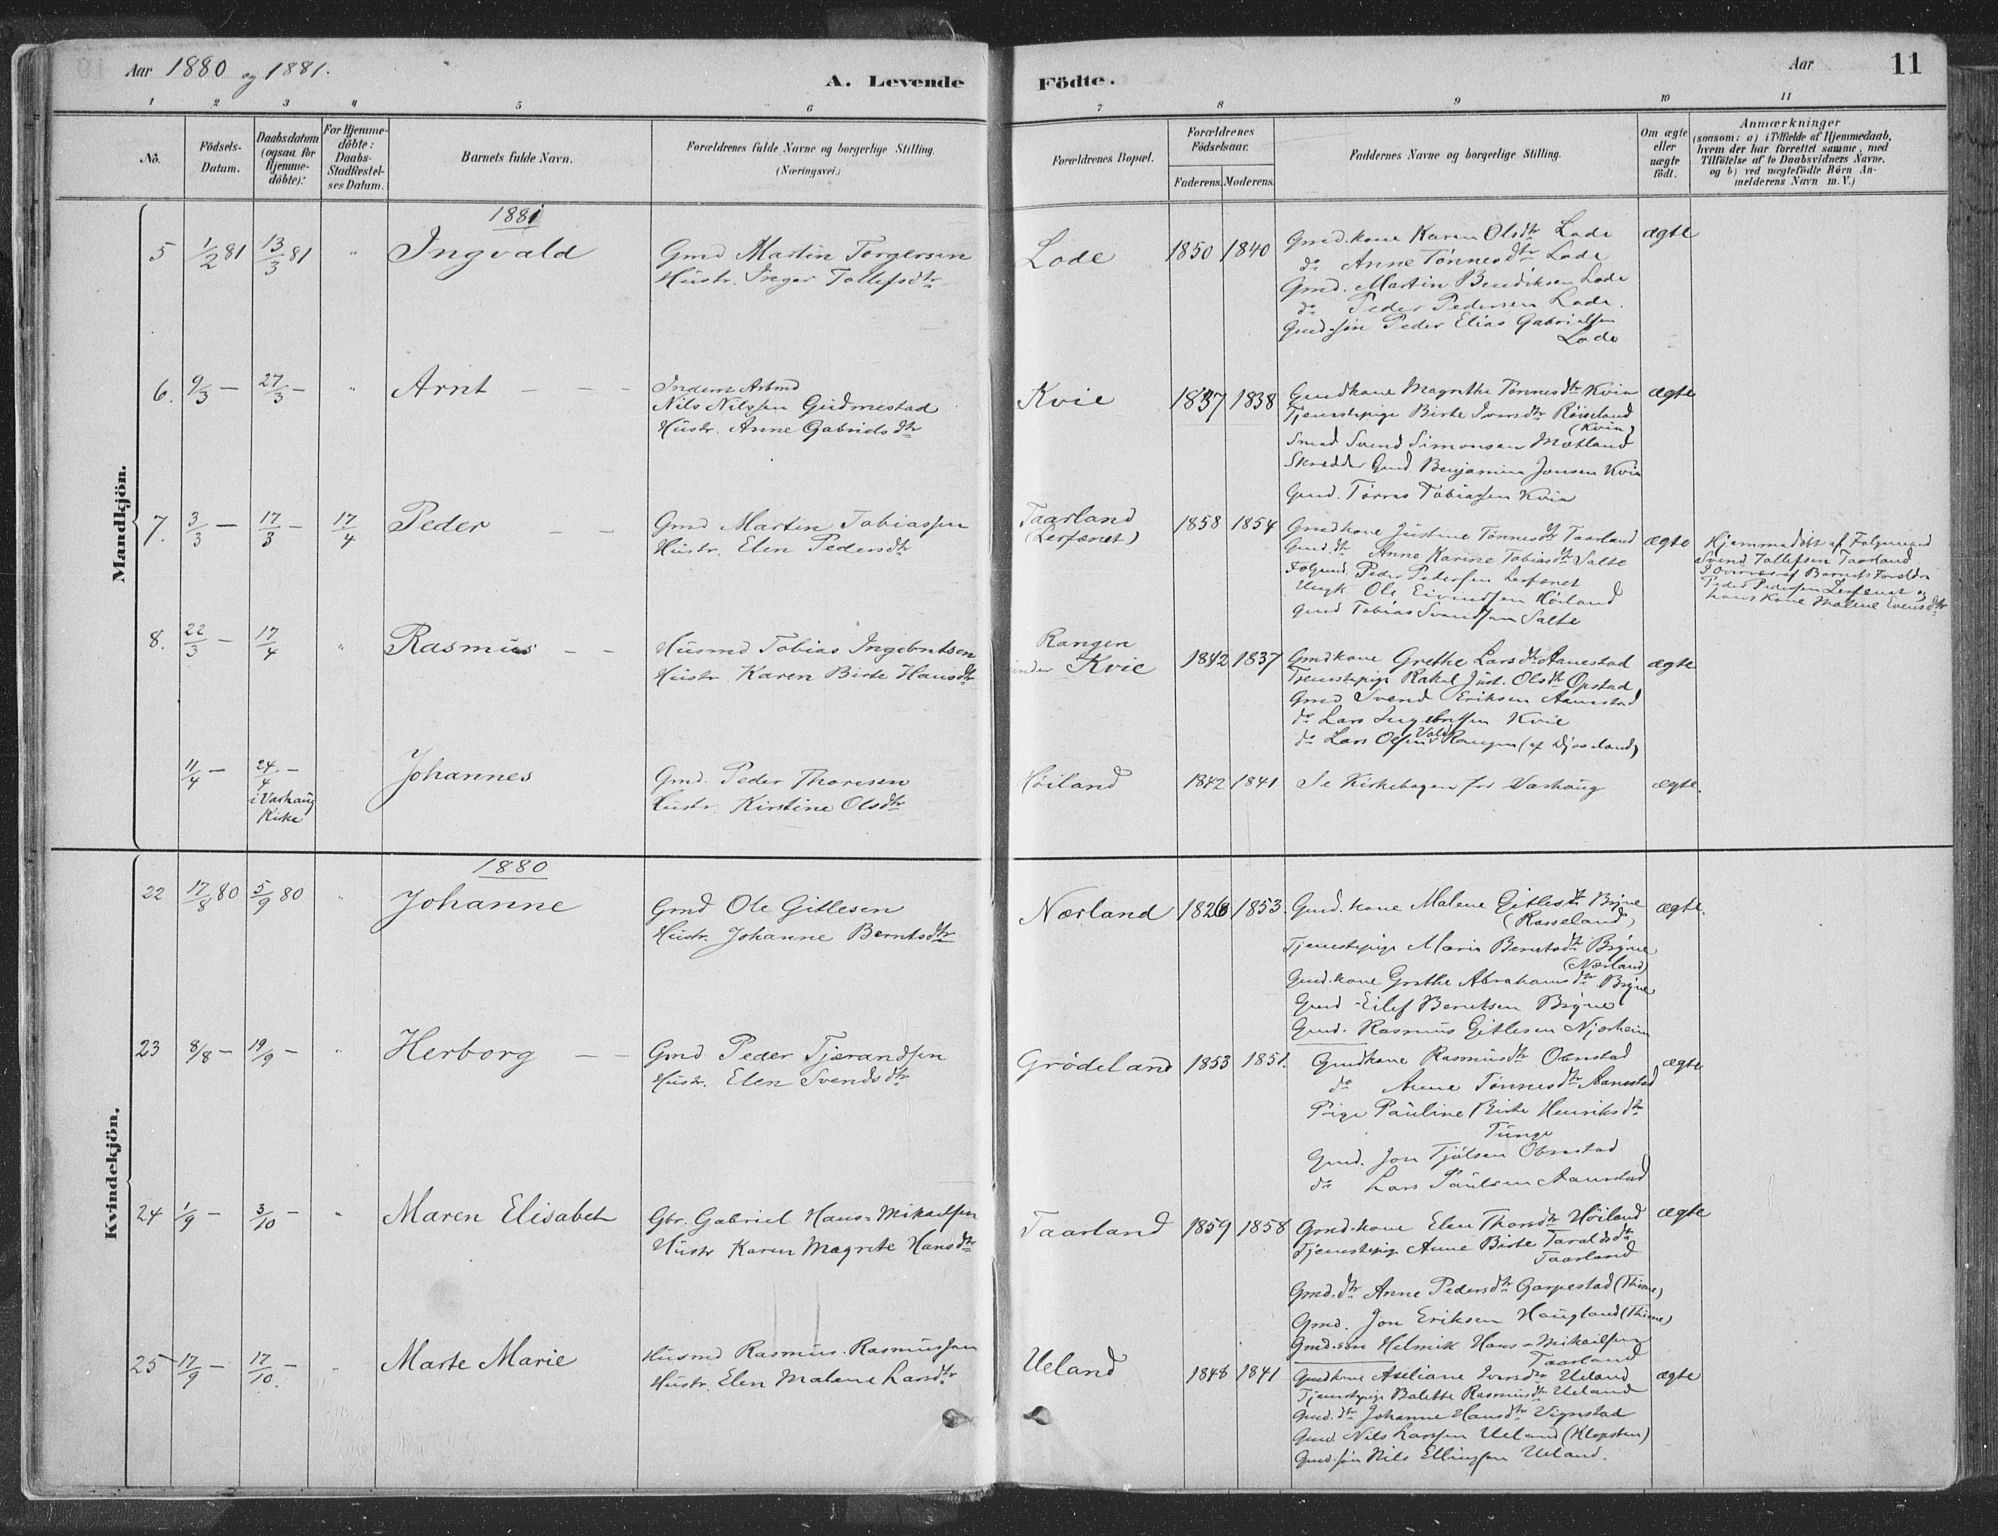 Aar 1880 og 1881.
A. Levende Födte.
Aar
11
1 2 3 4 5 6 7 8 9 10 11
No.
Födsels-Datum.
Daabsdatum (ogsaa for Hjemme-döbte):
For Hjemme-döbte: Daabs-Stadfæstel-ses Datum.
Barnets fulde Navn.
Forældrenes fulde Navne og borgerlige Stilling.
(Næringsvei.)
Forældrenes Bopæl.
Forældrenes Födselsaar.
Faderens. Moderens.
Faddernes Navne og borgerlige Stilling.
Om ægte eller uægte födt.
Anmærkninger
(saasom: a) i Tilfælde af Hjemmedaab,
hvem der har forrettet samme, med
Tilföielse af to Daabsvidners Navne.
og b) ved uægtefödte Börn An-
melderens Navn m. V.)
Mandkjön.
1881
5 1/2 81 13/3 81 " Ingvald
Gmd Martin Torgersen
Hustr. Inger Tollefsdtr
Lode 1850 1840
Gmd.kone Karen Olsdtr Lode
do Anne Tønnesdtr Lode
Gmd. Martin Bendiksen Lode
do Peder Pedersen Lode.
Gmd.søn Peder Elias Gabrielsen
Lode
ægte
6. 9/3 – 27/3 – " Arnt – – –
Inderst Arbmd
Nils Nilssen Gudmestad
Hustr. Anne Gabrielsdtr
Kvie 1837 1838
Gmdkone Magrethe Tønnesdtr Kvia
Tjenestepige Birte Iversdtr Røiseland
(Kvia)
Smed Svend Simonsen Motland
Skrædder Gmd. Benjamin Jonsen Kvia
Gmd. Tørres Tobiassen Kvia
ægte
7. 3/3 – 17/3 – 17/4 Peder – –
Gmd Martin Tobiassen
Hustr. Elen Pedersdtr
Taarland
(Lerfænet)
1858 1854
Gmdkone Justine Tønnesdtr Taarland
Gmd.dtr Anne Karine Tobiasdtr Salte
Folgmd. Peder Pedersen Lerfænet
Ungk Ole Eivindsen Høiland
Gmd Tobias Svendsen Salte
ægte
Hjemmedøbt af Folgemand
Svend Tollefsen Taarland
I Overvær af Barnets Forældre
Peder Pedersen Lerfænet og
hans Kone Malene Evensdtr
8. 22/3 – 17/4 " Rasmus – –
Husmd Tobias Ingebretsen
Hustr. Karen Birte Hansdtr
Rangen
under Kvie
1842 1837
Gmdkone Grethe Larsdtr Aanestad
Tjenestepige Rakel Just. Olsdtr Opstad
Gmd Svend Eriksen Aanestad
do Lars Ingebretsen Kvie
do Lars Olsen Rangen (af Djoseland)
ægte
11/4 – 24/4 –
i Varhaug
Kirke
Johannes
Gmd. Peder Thoresen
Hustr. Kirstine Olsdtr
Høiland 1842 1841 Se Kirkebogen for Varhaug ægte.
Kvindekjön.
1880
22 17/8 80 5/9 80 " Johanne
Gmd Ole Gitlesen
Hustr. Johanne Berntsdtr
Nærland 1826 1853.
Gmd.kone Malene Gitlesdtr Bryne
(Rosseland)
Tjenestepige Maria Berntsdtr Bryne
(Nærland)
Gmd.kone Grethe Abrahamsdtr Bryne
Gmd Eilef Berntsen Bryne
Gmd. Rasmus Gitlesen Njorheim
ægte.
23 8/8 – 19/9 – " Herborg – –
Gmd Peder Tjærandsen
Hustr. Elen Svendsdtr
Grødeland 1853 1851.
Gmdkone Rasmusdtr Obrestad
do Anne Tønnesdtr Aanestad
Pige Pauline Birte Henriksdtr
Tunge
Gmd. Jon Tjølsen Obrestad
do Lars Paulsen Aanestad
ægte
24 1/9 – 3/10 – " Maren Elisabet
Gbr. Gabriel Hans=Mikaelsen
Hustr Karen Magrete Hansdtr
Taarland 1859 1858
Gmd.kone Elen Thorsdtr Høiland
Tjenestepige Anne Birte Taraldsdtr
Taarland
Gmd.dtr Anne Pedersdtr Garpestad (Thime)
Gmd. Jon Eriksen Haugland (Thime)
Gmdsøn Helmik Hans=Mikaelsen
Taarland
ægte
25 17/9 – 17/10 – " Marte Marie
Husmd Rasmus Rasmussen
Hustr. Elen Malene Larsdtr
Ueland 1848 1841
Gmdkone Aseliane Iversdtr Ueland
Tjenestepige Bolette Rasmusdtr Ueland
Gmd.dtr Johanne Hansdtr Vignstad
Gmd. Nils Larsen Ueland (Klopsten)
Gmd.søn Nils Ellingsen Ueland.
ægte